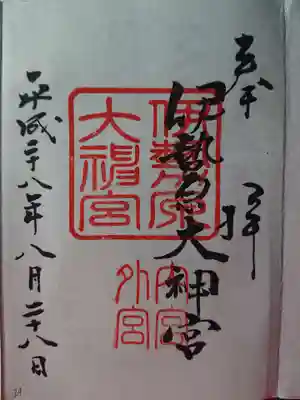 奉拝
伊勢原大神宮
伊勢原
大神宮
内宮
外宮
平成二十八年八月二十八日